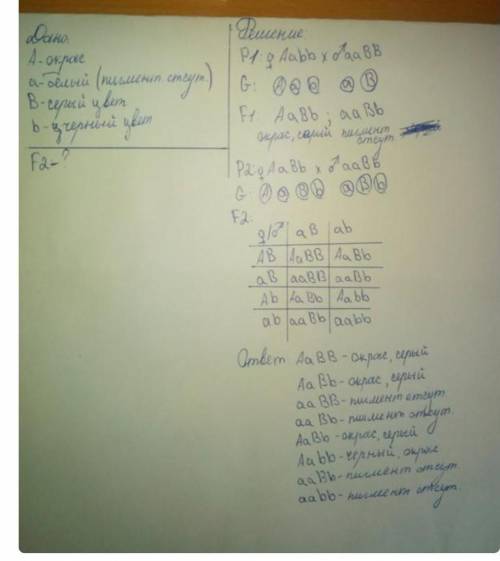 Дано:
А-окрас
а-белый (пигмент отсут.)
В-серый цвет
b-черный цвет
F2-?
Решение
P1: ♀ Aabb x ♂ aaBB
G: A a b a B
F1: AaBb ; aaBb
окрас, серый пигмент
отсут.
P2: ♀ AaBb x ♂ aaBb
G A a B b a B b
F2:
♀/♂ aB ab
AB AaBB AaBb
aB aaBB aaBb
Ab AaBb Aabb
ab aaBb aabb
Ответ: AaBB - окрас, серый
AaBb - окрас, серый
aaBB - пигмент отсут.
aaBb - пигмент отсут.
AaBb - окрас, серый
Aabb - черный, окрас
aaBb - пигмент отсут.
aabb - пигмент отсут.